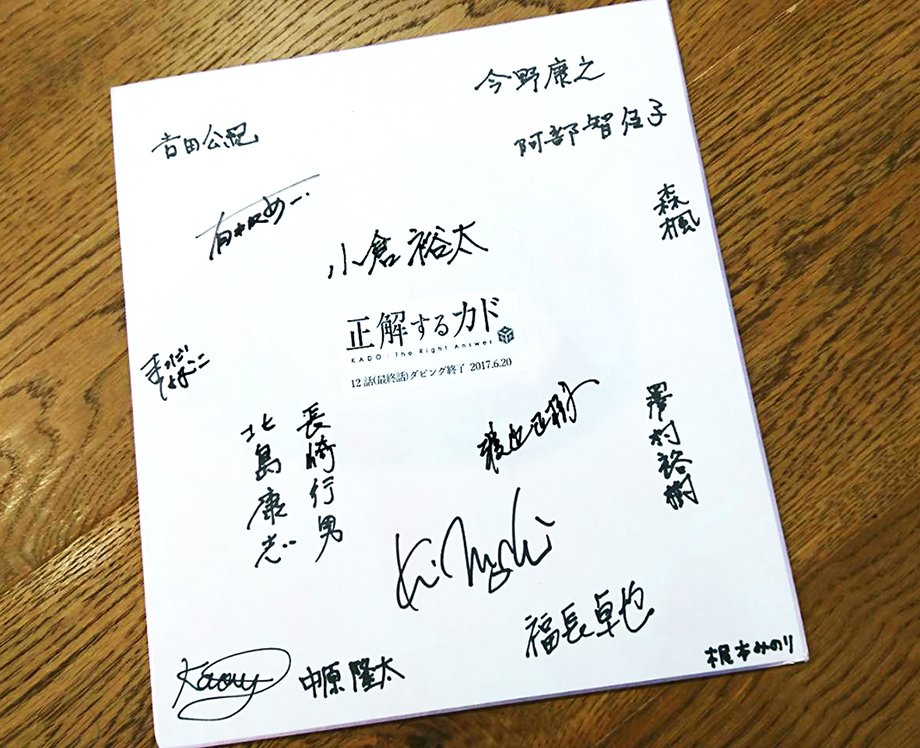 今野康之
吉田公紀
阿部智佳子
森楓
小倉裕太
正解するカド
KADO : The Right Answer
12話(最終話)ダビング終了 2017.6.20
長崎行男
北島康志
澤村裕樹
福長卓也
Kaory
中原隆太
梶本みのり